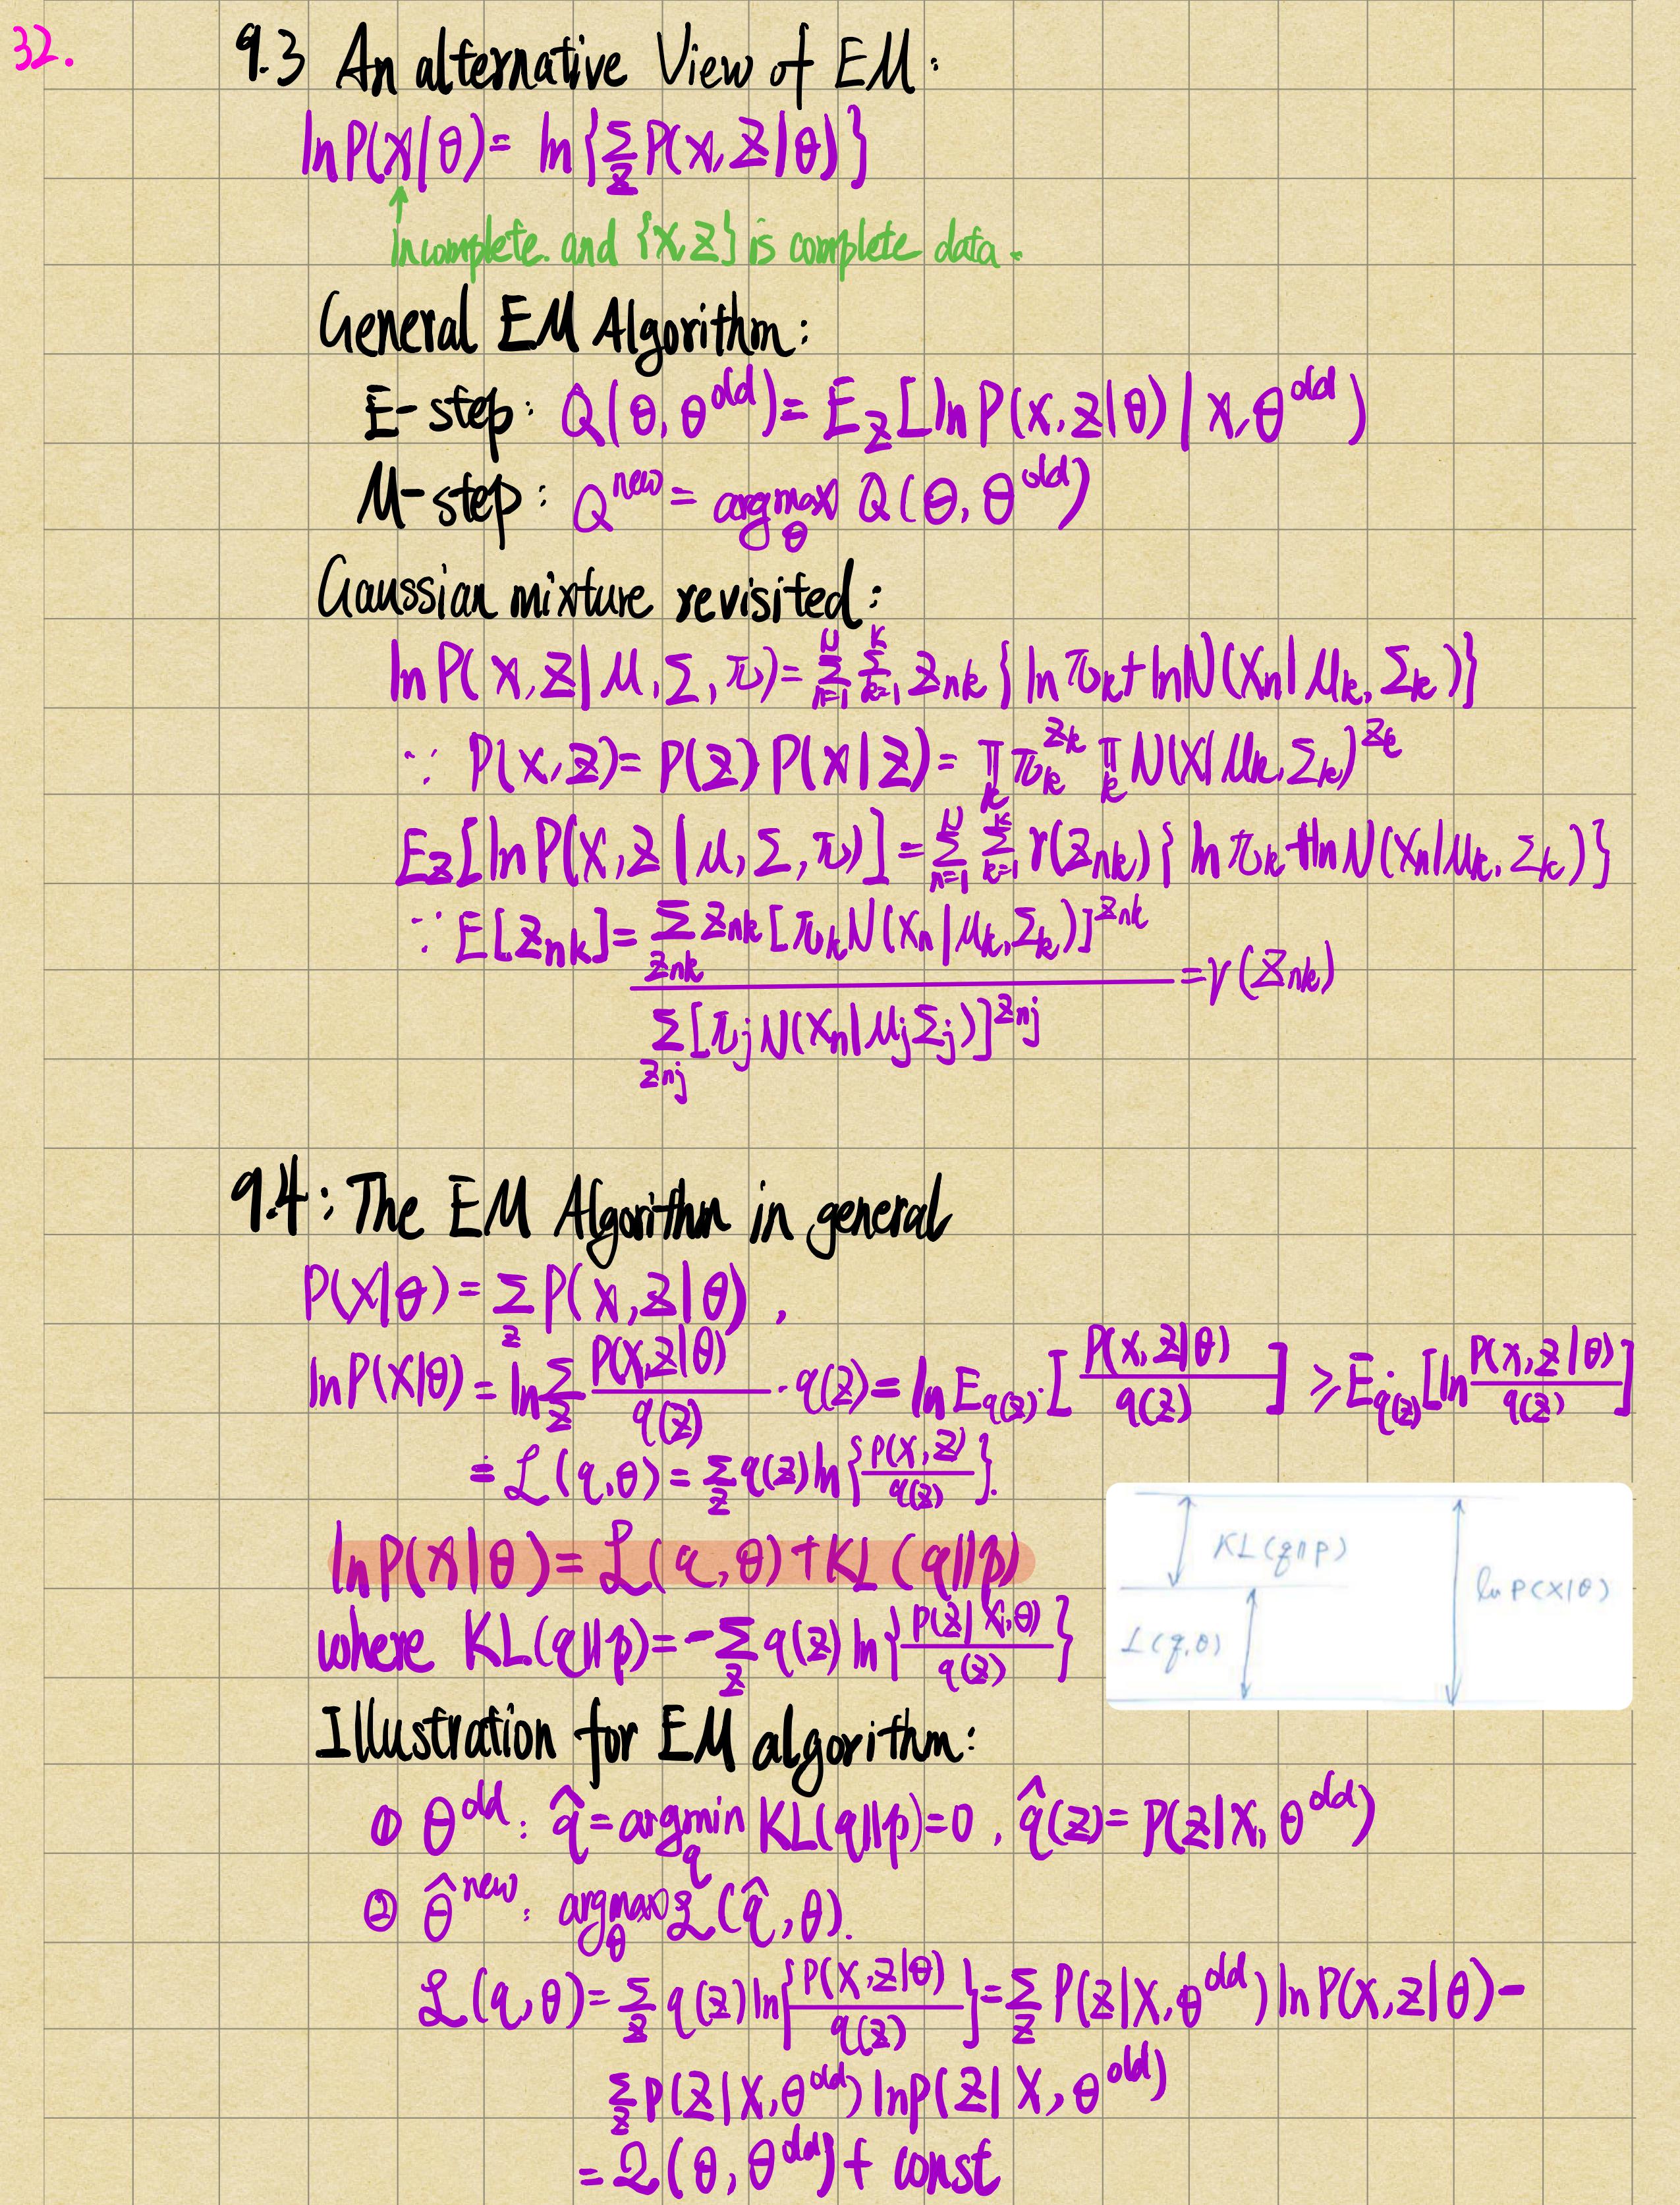 32.
9.3 An alternative View of EM:
ln P(X|θ) = ln {∑_z P(X,Z|θ)}
↑
Incomplete. and {X,Z} is complete data.
General EM Algorithm:
E-step: Q(θ,θ^old) = E_z[ln P(X,Z|θ) | X,θ^old)
M-step: Q^new = argmax_θ Q(θ,θ^old)
Gaussian mixture revisited:
ln P(X,Z|μ,Σ,π) = ∑_{n=1}^N ∑_{k=1}^K z_nk {ln π_k + ln N(X_n|μ_k,Σ_k)}
∵ P(X,Z) = P(Z) P(X|Z) = ∏_k π_k^{z_k} ∏_k N(X|μ_k,Σ_k)^{z_k}
E_z[ln P(X,Z|μ,Σ,π)] = ∑_{n=1}^N ∑_{k=1}^K γ(z_nk) {ln π_k + ln N(X_n|μ_k,Σ_k)}
∵ E[z_nk] = ∑_{z_nk} z_nk [π_k N(X_n|μ_k,Σ_k)]^{z_nk} / ∑_{z_nj} [π_j N(X_n|μ_j Σ_j)]^{z_nj} = γ(z_nk)
9.4: The EM Algorithm in general
P(X|θ) = ∑_z P(X,Z|θ),
ln P(X|θ) = ln ∑_z P(X,Z|θ)/q(z) · q(z) = ln E_{q(z)}[P(X,Z|θ)/q(z)] ≥ E_{q(z)}[ln P(X,Z|θ)/q(z)]
= ℒ(q,θ) = ∑_z q(z) ln {P(X,Z)/q(z)}.
ln P(X|θ) = ℒ(q,θ) + KL(q||p)
where KL(q||p) = -∑_z q(z) ln {P(z|X,θ)/q(z)}
KL(q||p)
L(q,θ)
ln P(X|θ)
Illustration for EM algorithm:
① θ^old: q̂ = argmin_q KL(q||p) = 0, q̂(z) = P(z|X,θ^old)
② θ̂^new: argmax_θ ℒ(q̂,θ).
ℒ(q,θ) = ∑_z q(z) ln {P(X,Z|θ)/q(z)} = ∑_z P(z|X,θ^old) ln P(X,Z|θ) -
∑_z P(Z|X,θ^old) ln P(Z|X,θ^old)
= Q(θ,θ^old) + const